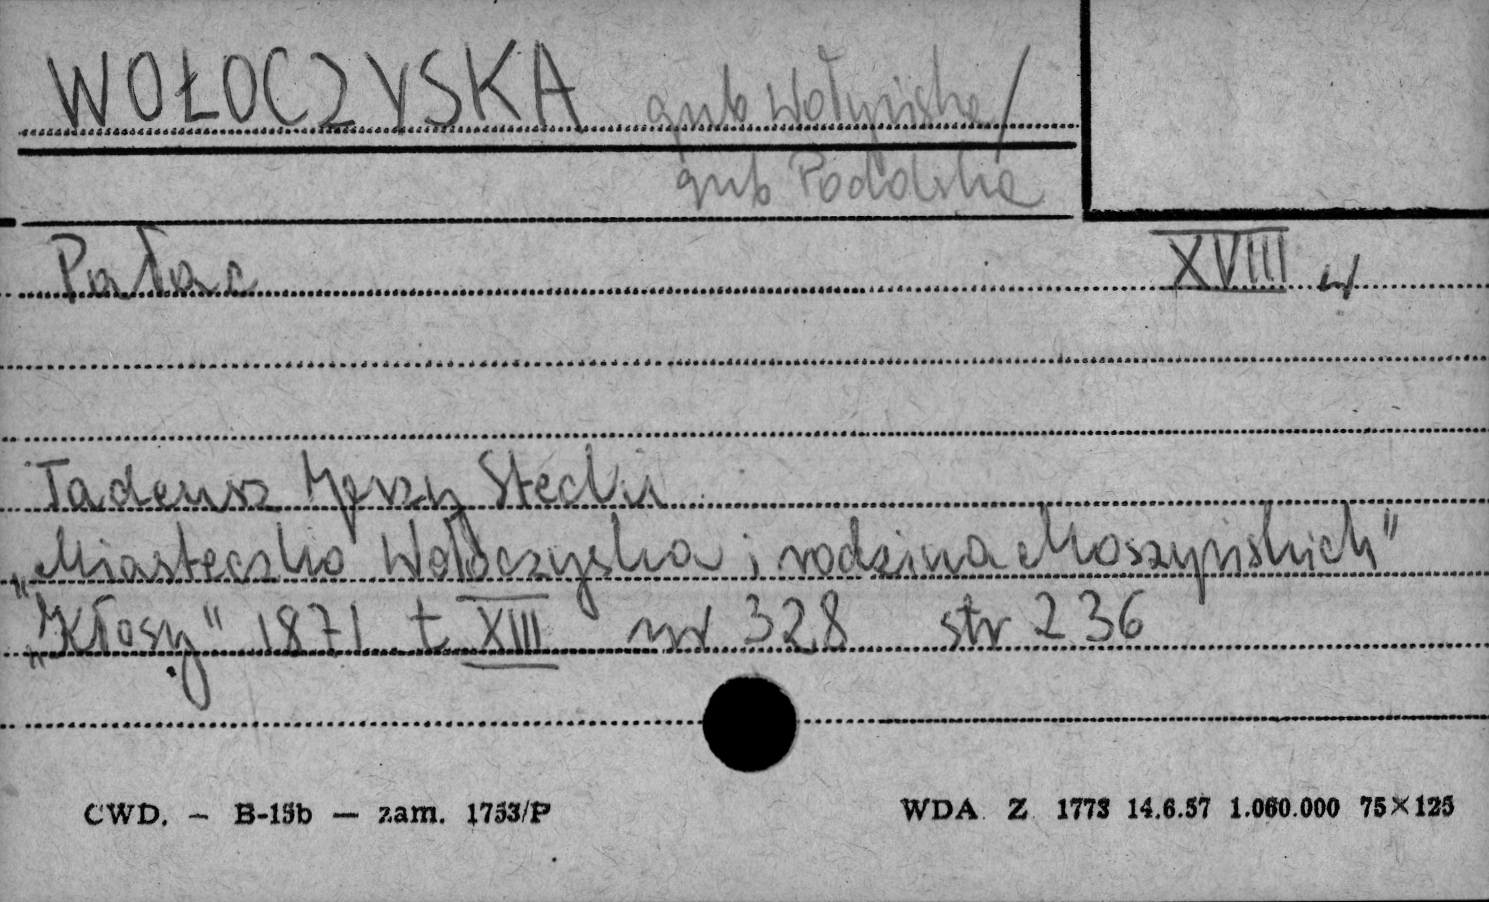 WOŁOCZYSKA gub Wołyńska/
gub Podolska
Pałac XVIII w
Tadeusz Jerzy Stecki
„Miasteczko Wołoczyska i rodzina Moszyńskich"
„Kłosy" 1871 t XIII nr 328 str 236
CWD. — B-15b — zam. 1753/P WDA Z 1773 14.6.57 1.060.000 75×125